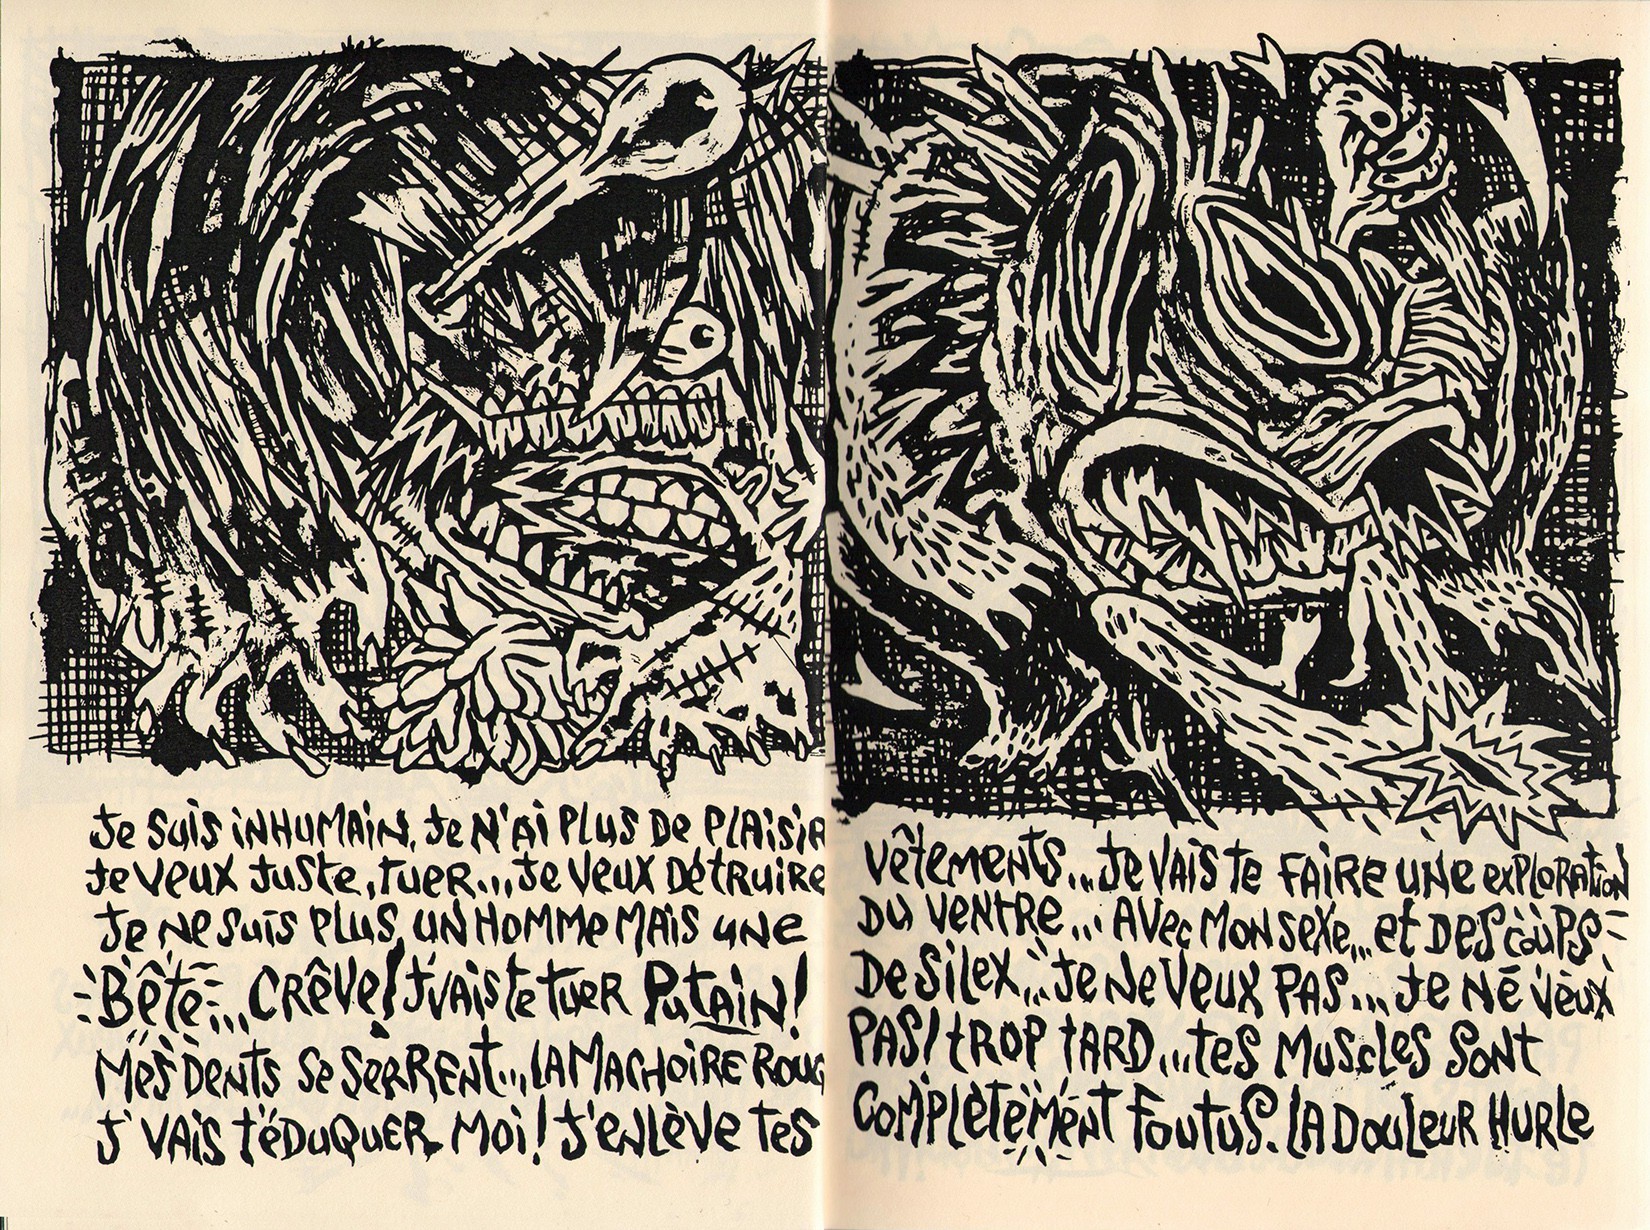 Je suis inhumain, Je n'ai plus de plaisir
Je veux juste, tuer... Je veux détruire
Je ne suis plus un homme mais une
Bête... Crêve! J'vais te tuer Putain!
Mes dents se serrent... La machoire roug
J'vais t'éduquer moi! J'enlève tes
vêtements... Je vais te faire une exploration
du ventre... avec mon sexe... et des coups
de silex... Je ne veux pas... Je ne veux
pas! trop tard... tes muscles sont
complètement foutus. La douleur hurle